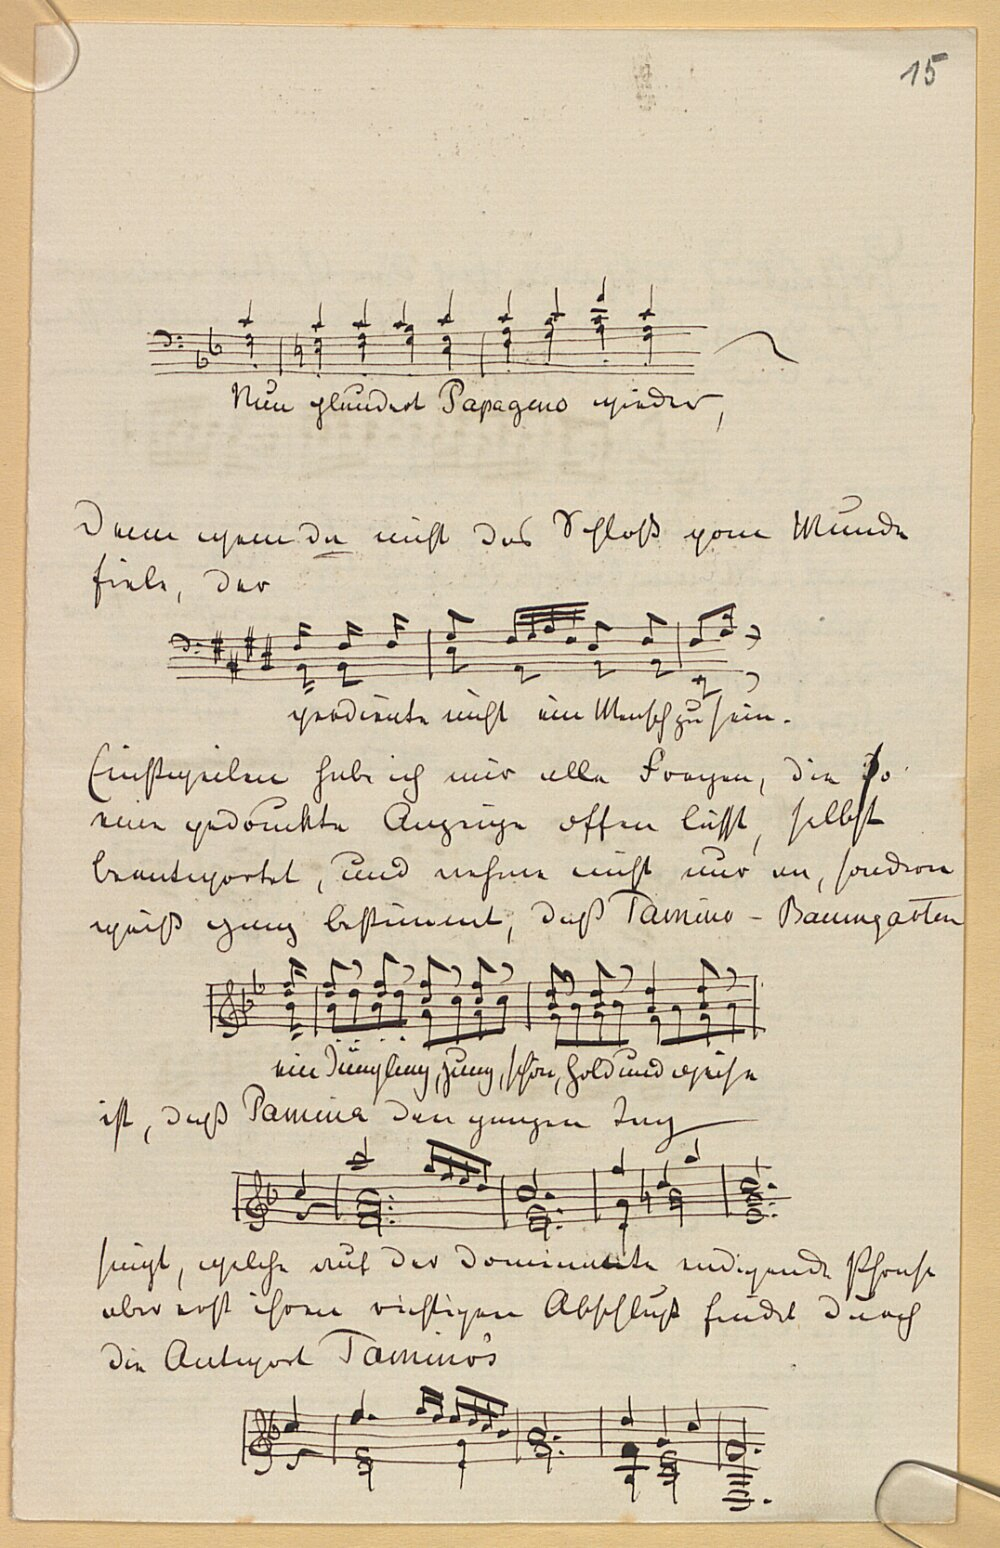 15
Nun plaudert Papageno wieder,
Denn wem da nicht das Schloß vom Munde
fiele, der
verdiente nicht ein Mensch zu sein.
Einstweilen habe ich mir alle Fragen, die so
eine gedruckte Anzeige offen läßt, selbst
beantwortet, und nehme nicht nur an, sondern
weiß ganz bestimmt, daß Tamino - Baumgarten
ein Jüngling, jung, schön, hold und weise
ist, daß Pamina den ganzen Tag
singt, welche auf der Dominante endigende Phrase
aber erst ihren richtigen Abschluß findet durch
die Antwort Tamino's